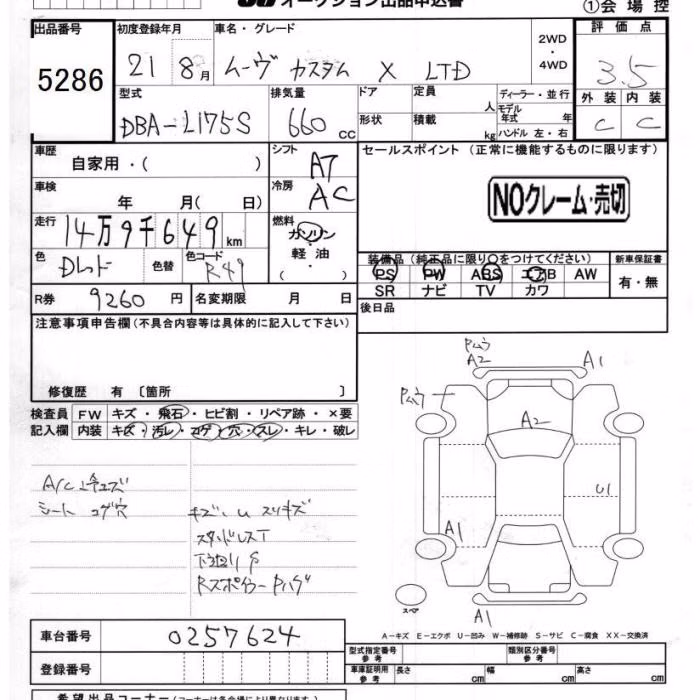 オークション出品申込書
①会場控
出品番号 初度登録年月 車名・グレード 評価点
5286 21 8月 ムーヴ カスタム X LTD 2WD・4WD 3.5
型式 排気量 ドア 定員 人 ディーラー・並行 外装 内装
DBA-L175S 660cc 形状 積載 kg モデル年式 年 ハンドル 左・右 C C
車歴 自家用・( ) シフト AT セールスポイント(正常に機能するものに限ります)
車検 年 月( 日) 冷房 AC NOクレーム・売切
走行 14万9千649km 燃料 ガソリン・軽油・( )
色 Dレッド 色替 色コード R49
装備品(純正品に限り〇をつけてください) 新車保証書
PS PW ABS エアB AW 有・無
SR ナビ TV カワ
R券 9260円 名変期限 月 日 後日品
注意事項申告欄(不具合内容等は具体的に記入して下さい)
修復歴 有〔箇所 〕
検査員 FW キズ・飛石・ヒビ割・リペア跡・×要
記入欄 内装 キズ・汚レ・コゲ・穴・スレ・キレ・破レ
シート コゲ穴
Pムラ
A2 A1
Pムラ
A2
U1
A1
スペア
A1
A-キズ E-エクボ U-凹み W-補修跡 S-サビ C-腐食 XX-交換済
車台番号 0257624
登録番号
型式指定番号 参考 類別区分番号 参考
車庫証明用 参考 長さ cm 幅 cm 高さ cm
希望出品コーナー(コーナーは各会場により異なります)